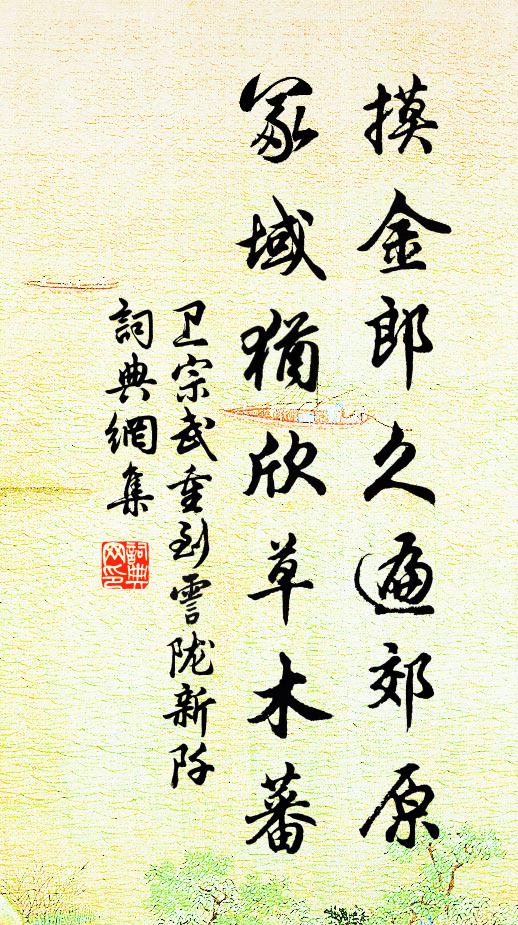 摸金郎久遍郊原
冢域犹欣草木蕃
卫宗武重到雲陇新阡
詞典網集
詞典
网印